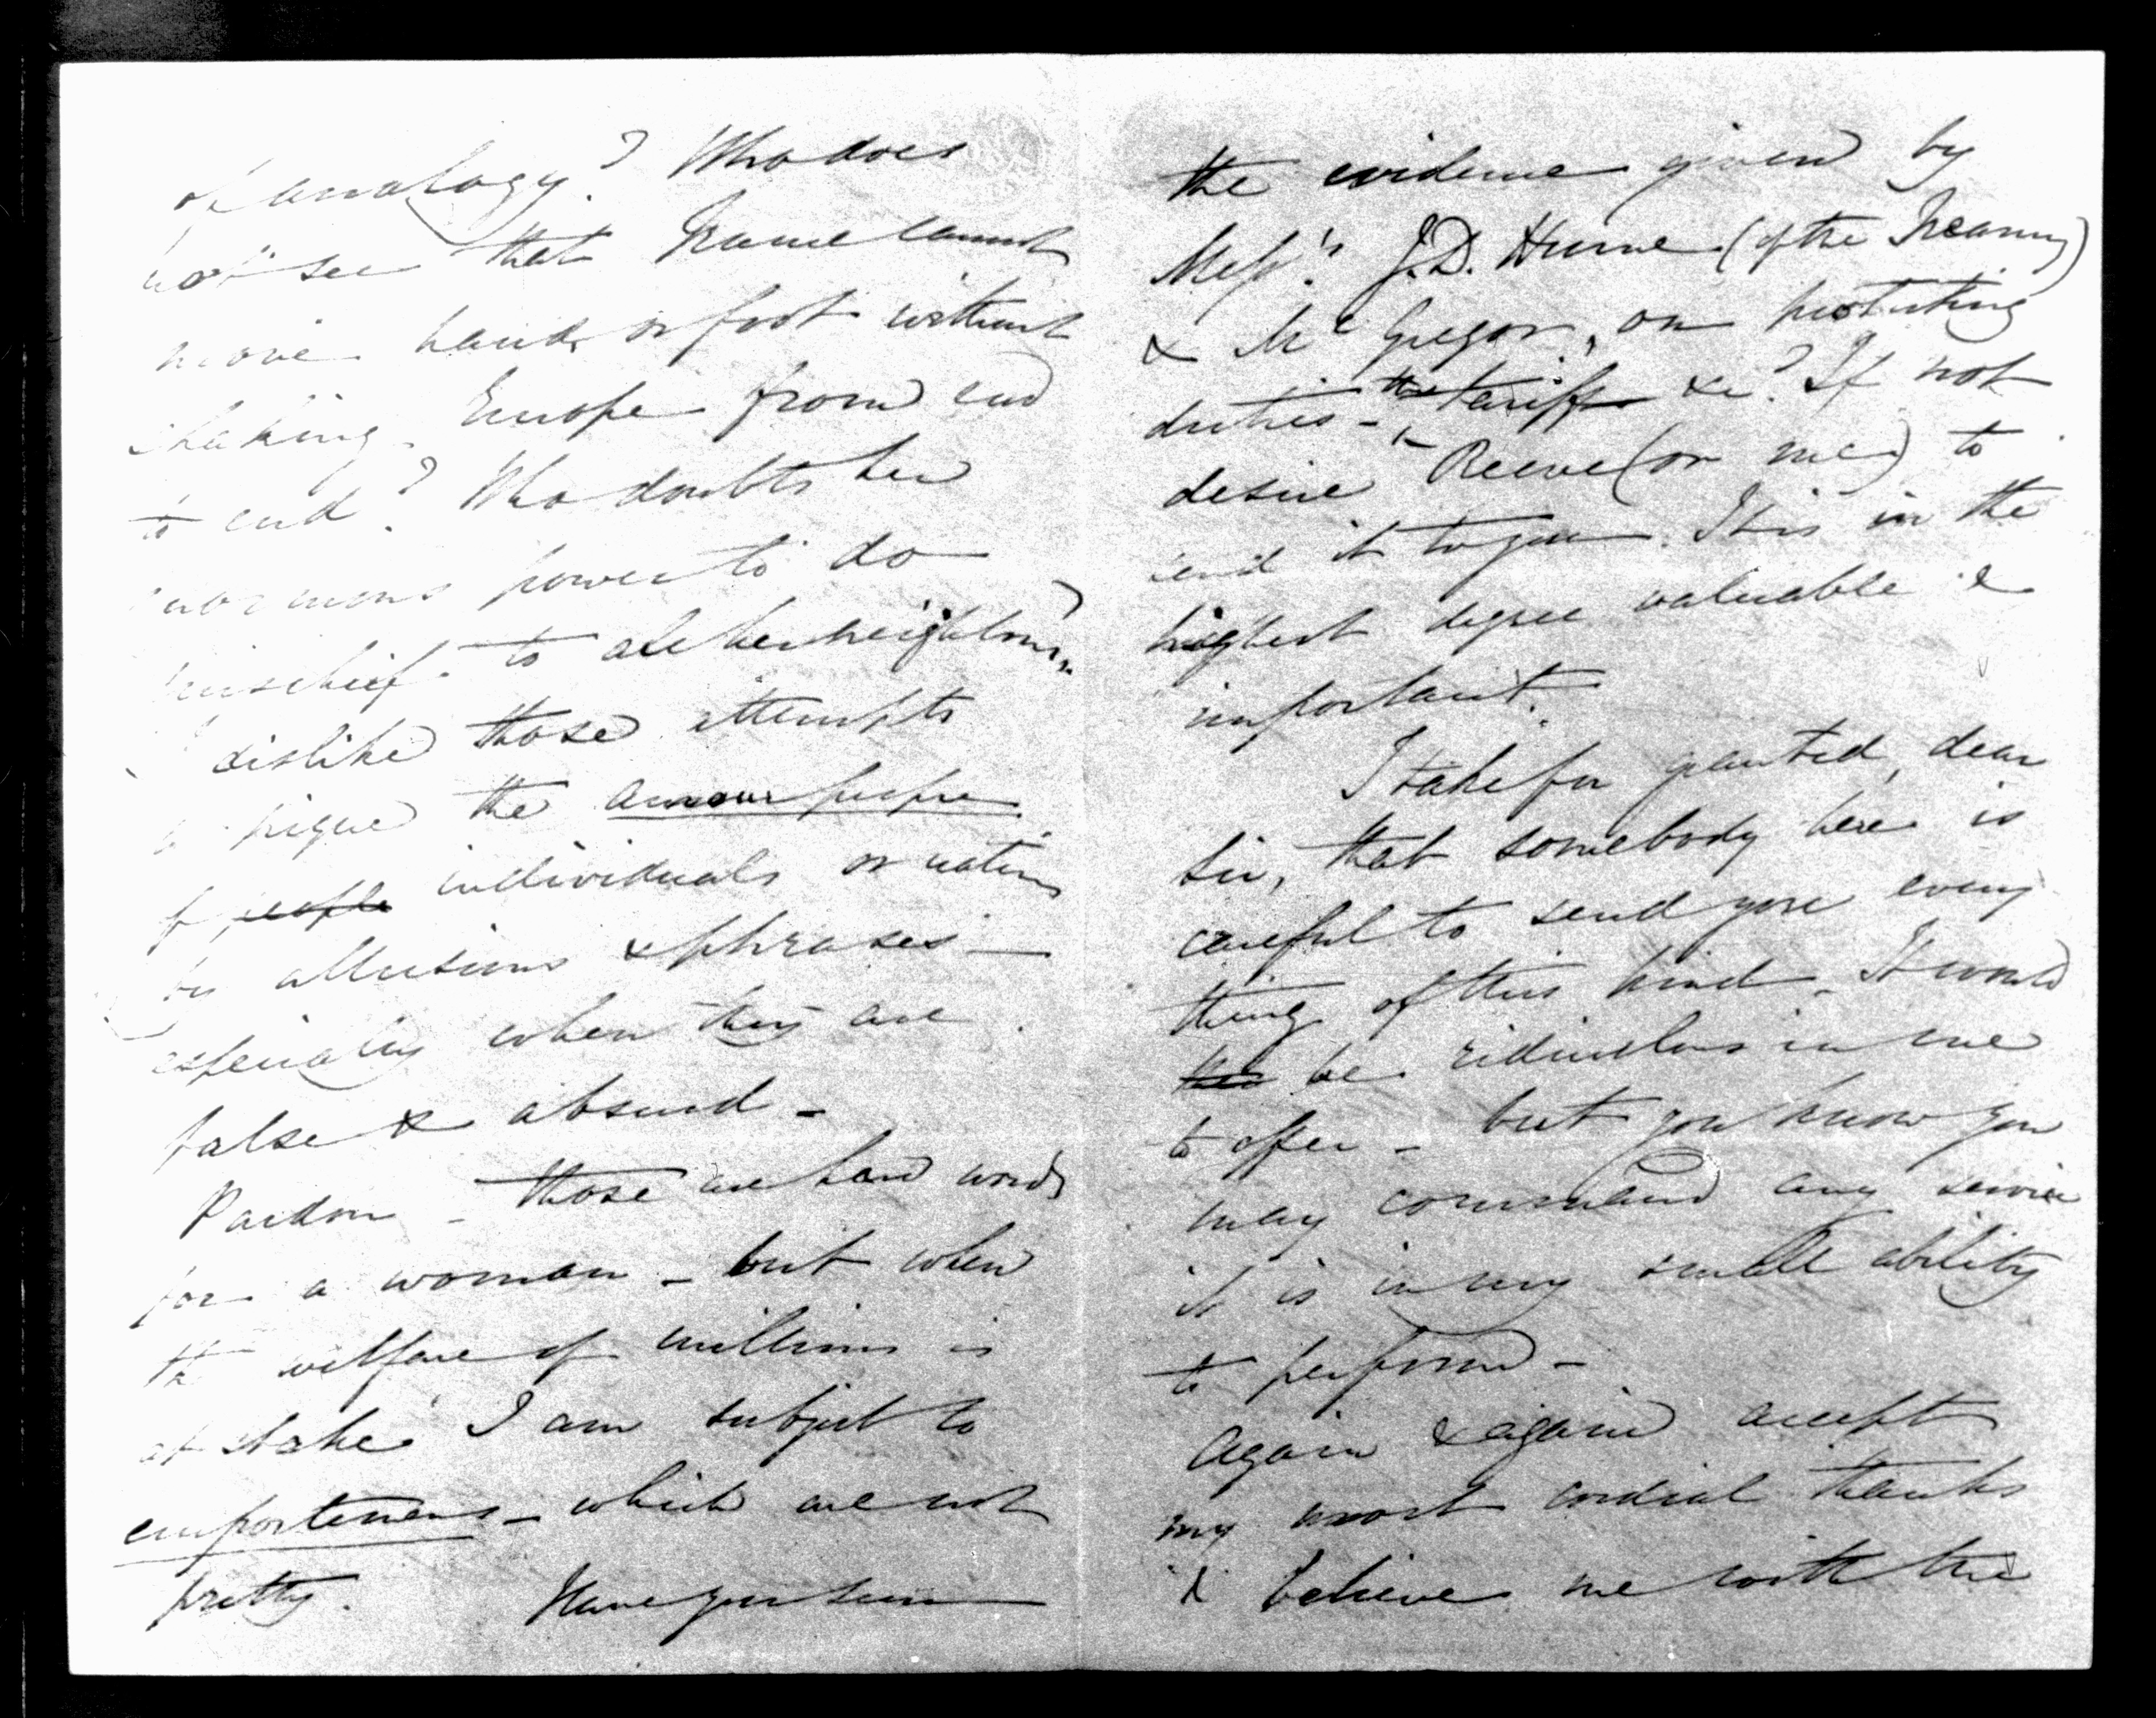 of analogy? Who does
not see that France cannot
move hand or foot without
shaking Europe from end
to end? Who doubts her
enormous power to do
mischief to all her neighbours?
I dislike those attempts
to pique the amour propre
of people individuals or nations
by allusions & phrases —
especially when they are
false & absurd —
Pardon — those are hard words
for a woman — but when
the welfare of millions is
at stake I am subject to
emportemens — which are not
pretty. Have you seen
the evidence given by
Messrs. J.D. Hume (of the Treasury)
& McGregor, on protecting
duties — the tariff &c? If not
desire Reeve (or me) to
send it to you. It is in the
highest degree valuable &
important.
I take for granted, dear
Sir, that somebody here is
careful to send you every
thing of this kind. It would
be ridiculous in me
to offer — but you know you
may command any service
it is in my small ability
to perform —
Again & again accept
my most cordial thanks
& believe me with the